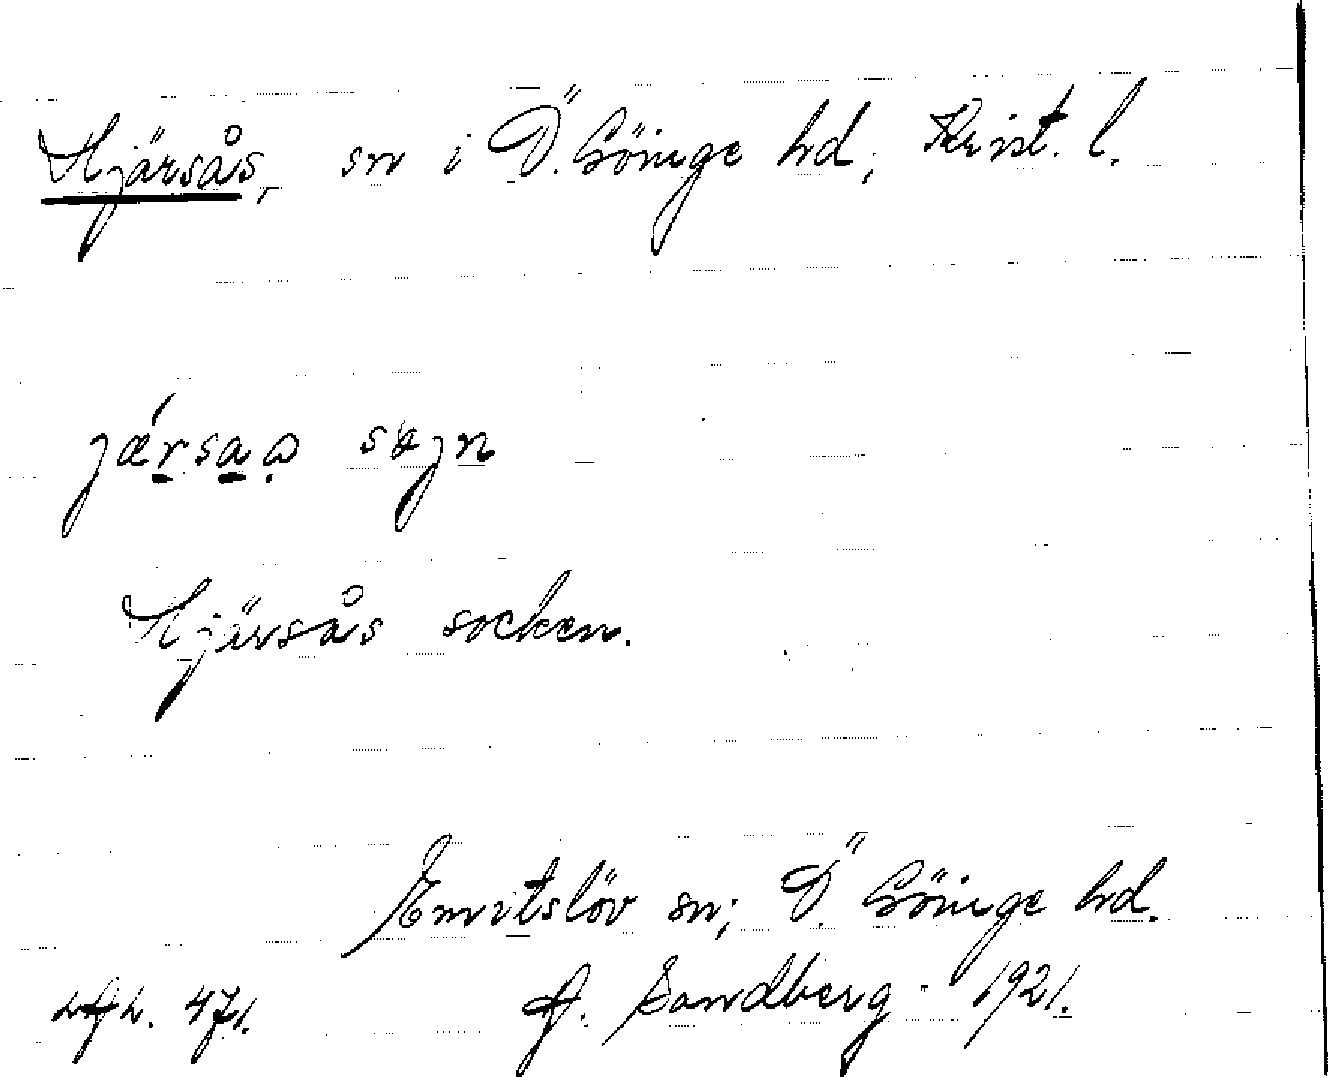 Hjärsås, sn i Ö. Göinge hd, Krist. l.
jǽrsas sajn
Hjärsås socken.
Emitslöv sn; Ö. Göinge hd.
471. A. Sandberg 1921.